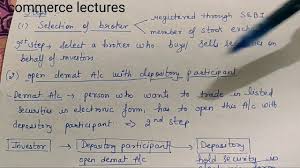 commerce lectures
Steps
(1) Selection of broker → registered through SEBI
member of stock exch
1st step → select a broker who buys/ sells securities on
behalf of investor
(2) open demat A/c with depository participant
- Demat A/c → person who wants to trade in listed
securities in electronic form, has to open this A/c with
depository participant ⇒ 2nd step
Investor → Depository participant → Depository
open demat A/c hold security in